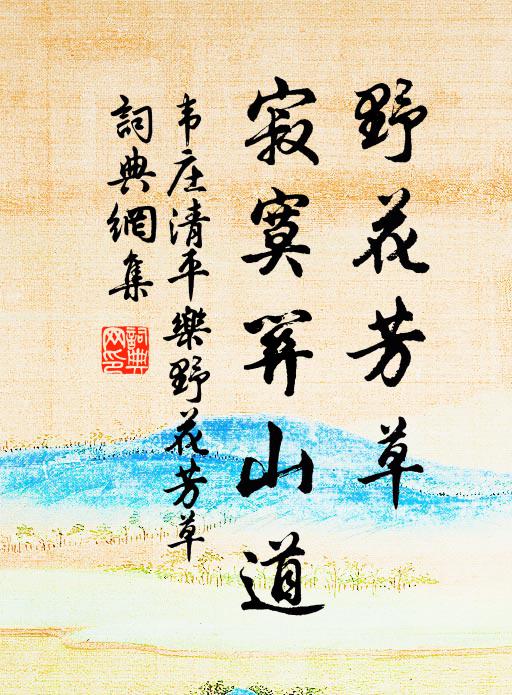 野花芳草
寂寞關山道
韦庄清平樂野花芳草
詞典網集
詞典
网印